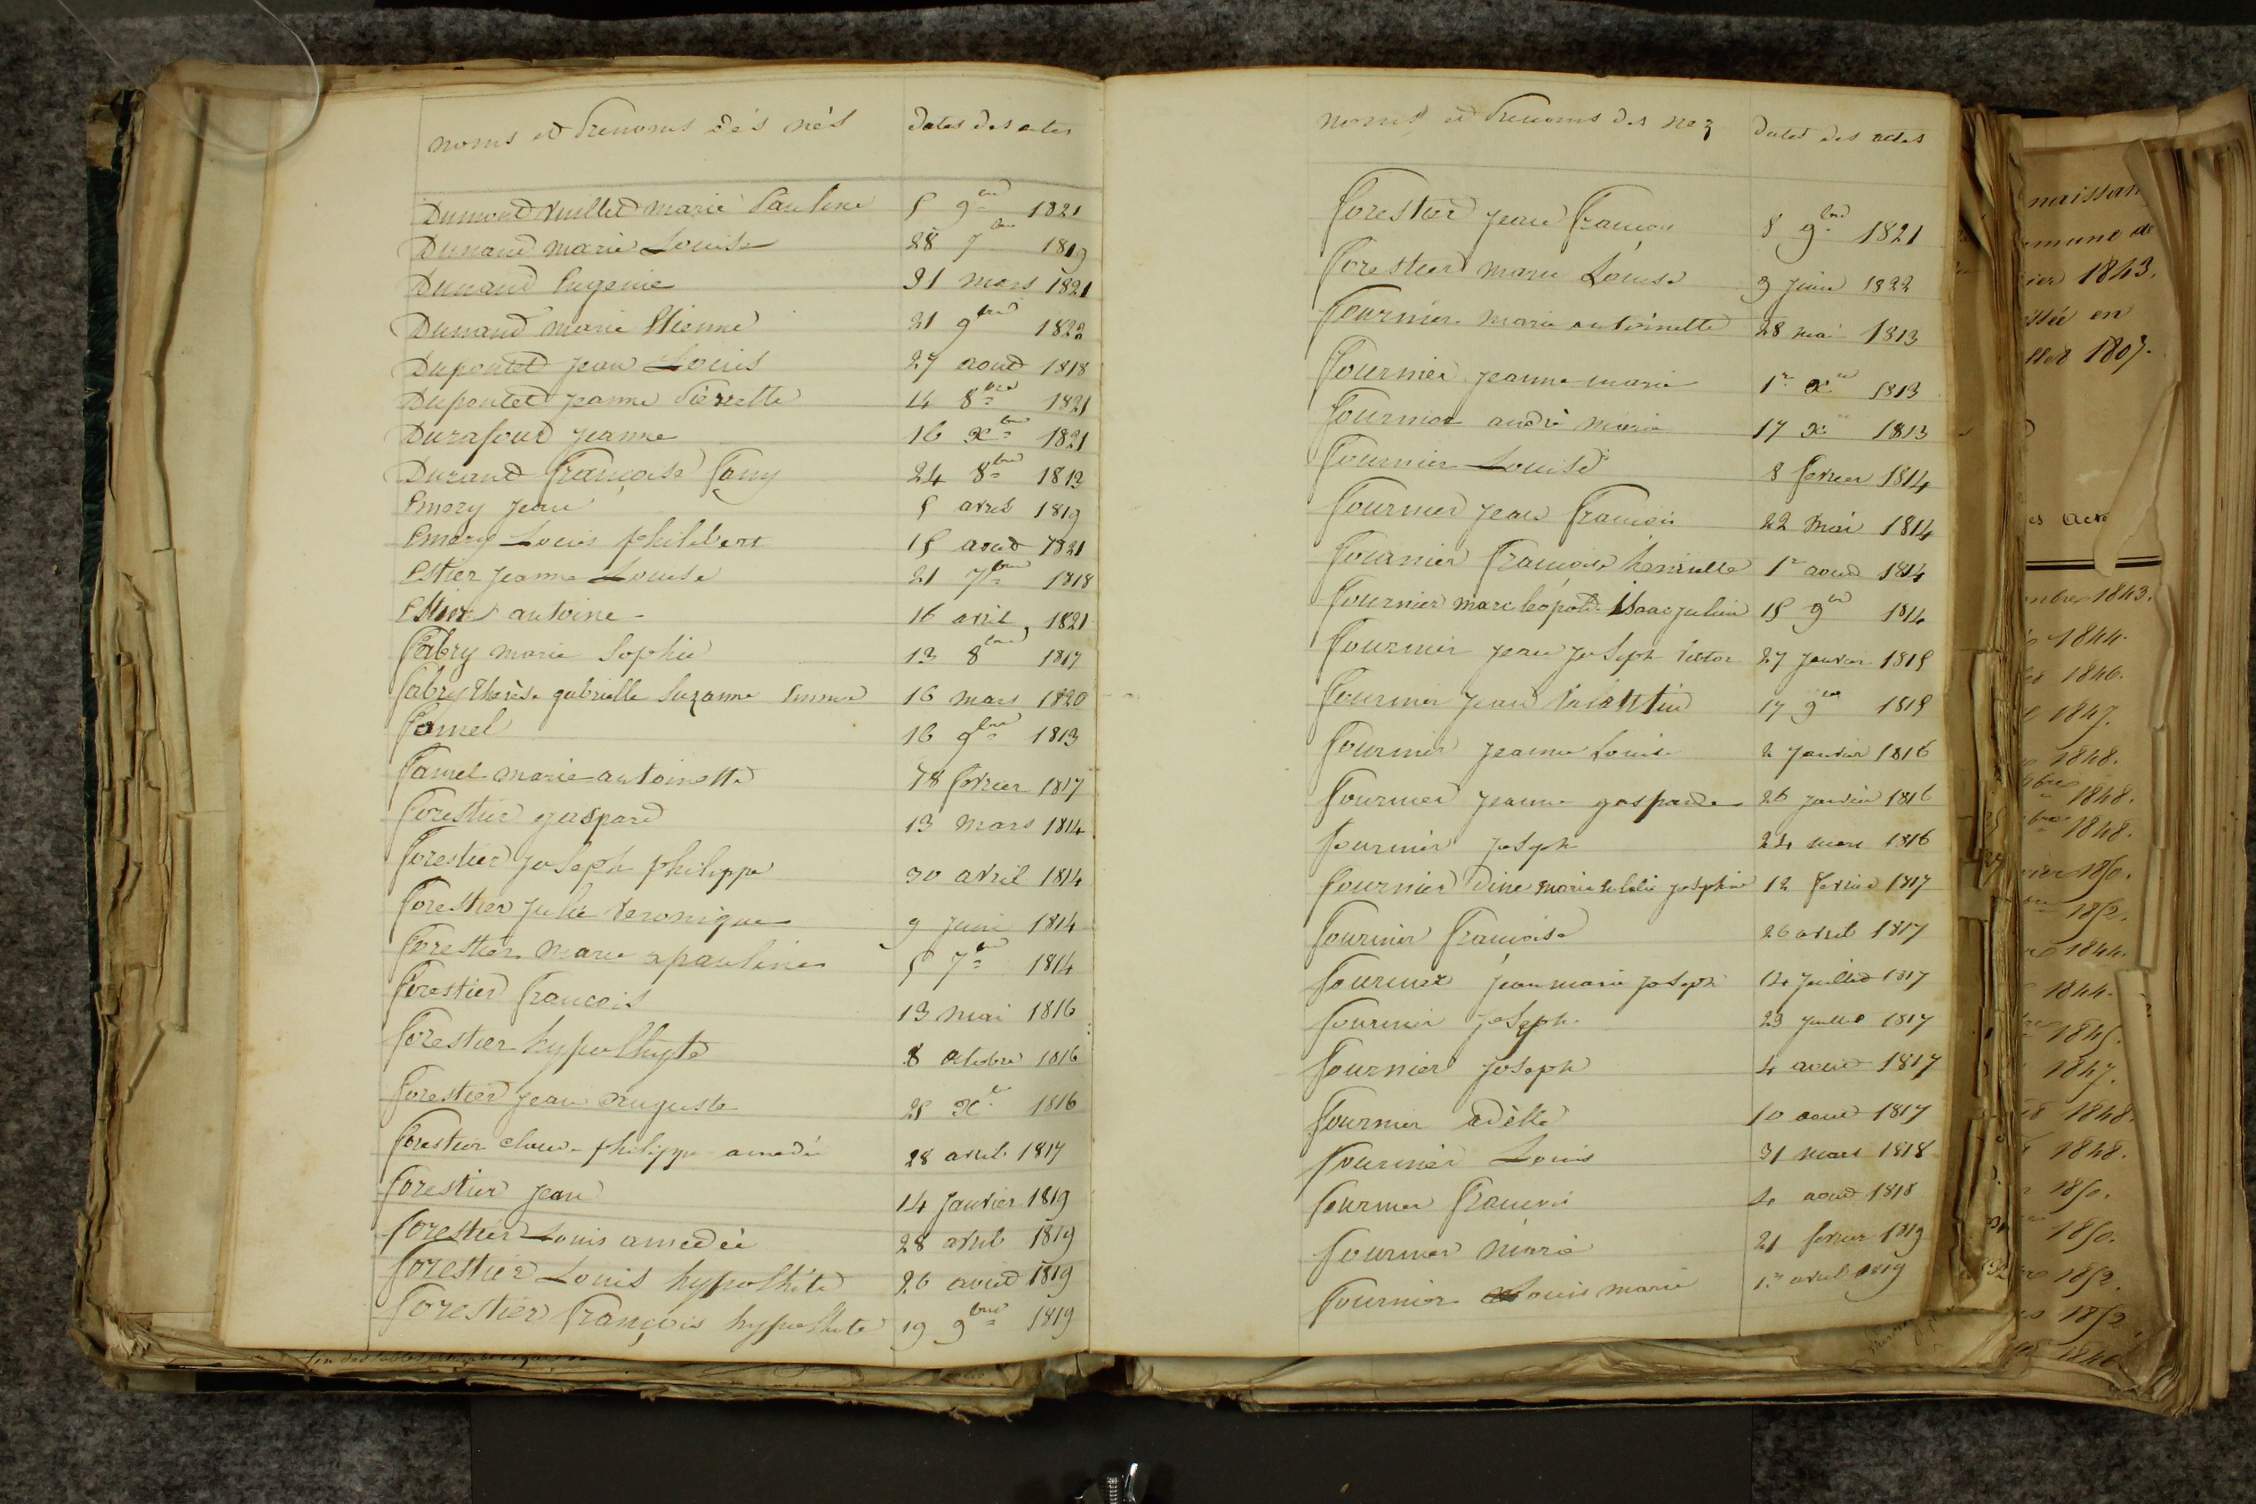 noms et Prenoms des nés dates des actes
Dumond Vuillet marie Pauline 5 9bre 1821
Dunand marie Louise 28 7bre 1819
Dunand Eugenie 31 mars 1821
Dunand marie Etienne 21 9bre 1822
Dupontet jean Louis 27 aout 1818
Dupontet jeanne Pierrette 14 8bre 1821
Durafour jeanne 16 xbre 1821
Durand françoise fany 24 8bre 1813
Emery jean 5 avril 1819
Emery Louis philibert 15 aout 1821
Estier jeanne Louise 21 7bre 1818
Estier antoine 16 avril 1821
fabry marie Sophie 13 8bre 1817
fabry Therèse gabrielle Suzanne Emma 16 mars 1820
famel 16 9bre 1813
famel marie antoinette 18 fevrier 1817
forestier gaspard 13 mars 1814
forestier joseph philippe 30 avril 1814
forestier julie veronique 9 juin 1814
forestier marie pauline 5 7bre 1814
forestier francois 13 mai 1816
forestier hypolhyte 8 octobre 1816
forestier jean auguste xbre 1816
forestier claude philippe amedé 28 avril 1817
forestier jean 14 janvier 1819
forestier Louis amedée 28 avril 1819
forestier Louis hypolhite 26 aout 1819
forestier françois hypolhite 19 9bre 1819
noms et Prenoms des nez Dates des actes
forestier jean françois 5 9bre 1821
forestier marie Louise 9 juin 1822
fournier marie antoinette 28 mai 1813
fournier jeanne marie 1er xbre 1813
fournier andré marie 17 xbre 1813
fournier Louise 8 fevrier 1814
fournier jean francois 22 mai 1814
fournier françoise henriette 1er aout 1814
fournier marc léopold isaac julien 15 9bre 1814
fournier jean joseph victor 27 janvier 1815
fournier jean valentin 17 9bre 1815
fournier jeanne Louise 2 janvier 1816
fournier jeanne gasparde 26 janvier 1816
fournier joseph 24 mars 1816
fournier marie joséphine 12 fevrier 1817
fournier françoise 26 avril 1817
fournier jean marie joseph 14 juillet 1817
fournier joseph 23 juillet 1817
fournier joseph 4 aout 1817
fournier adèlle 10 aout 1817
fournier Louis 31 mars 1818
fournier francois 4 aout 1818
fournier marie 21 fevrier 1819
fournier Louis marie 1er avril 1819